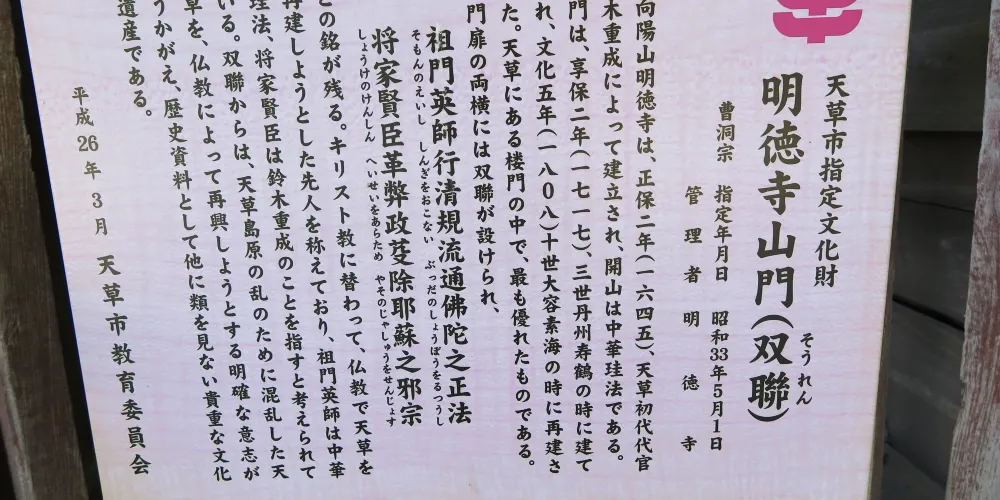 天草市指定文化財
明徳寺山門(双聯)
そうれん
曹洞宗 指定年月日 昭和33年5月1日
管理者 明徳寺
向陽山明徳寺は、正保二年(一六四五)、天草初代代官
木重成によって建立され、開山は中華珪法である。
門は、享保二年(一七一七)、三世丹州寿鶴の時に建て
れ、文化五年(一八〇八)十世大容素海の時に再建さ
た。天草にある楼門の中で、最も優れたものである。
門扉の両横には双聯が設けられ、
祖門英師行清規流通佛陀之正法
そもんのえいし しんぎをおこない ぶっだのしょうぼうをるつうし
将家賢臣革弊政芟除耶蘇之邪宗
しょうけのけんしん へいせいをあらため やそのじゃしゅうをせんじょす
との銘が残る。キリスト教に替わって、仏教で天草を
再建しようとした先人を称えており、祖門英師は中華
珪法、将家賢臣は鈴木重成のことを指すと考えられて
いる。双聯からは、天草島原の乱のために混乱した天
草を、仏教によって再興しようとする明確な意志が
うかがえ、歴史資料として他に類を見ない貴重な文化
遺産である。
平成26年3月 天草市教育委員会